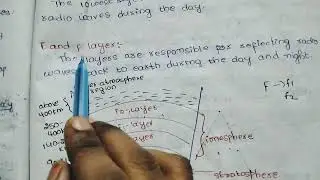 The lowest
radio waves during the day.
F and F layer:-
The layers are responsible for reflecting radio
waves back to earth during the day and night.
upper atmosphere
region
above
400km
F2-Layer
F → f1
f2
250-
400
layer
140-
layer
ionosphere
stratosphere